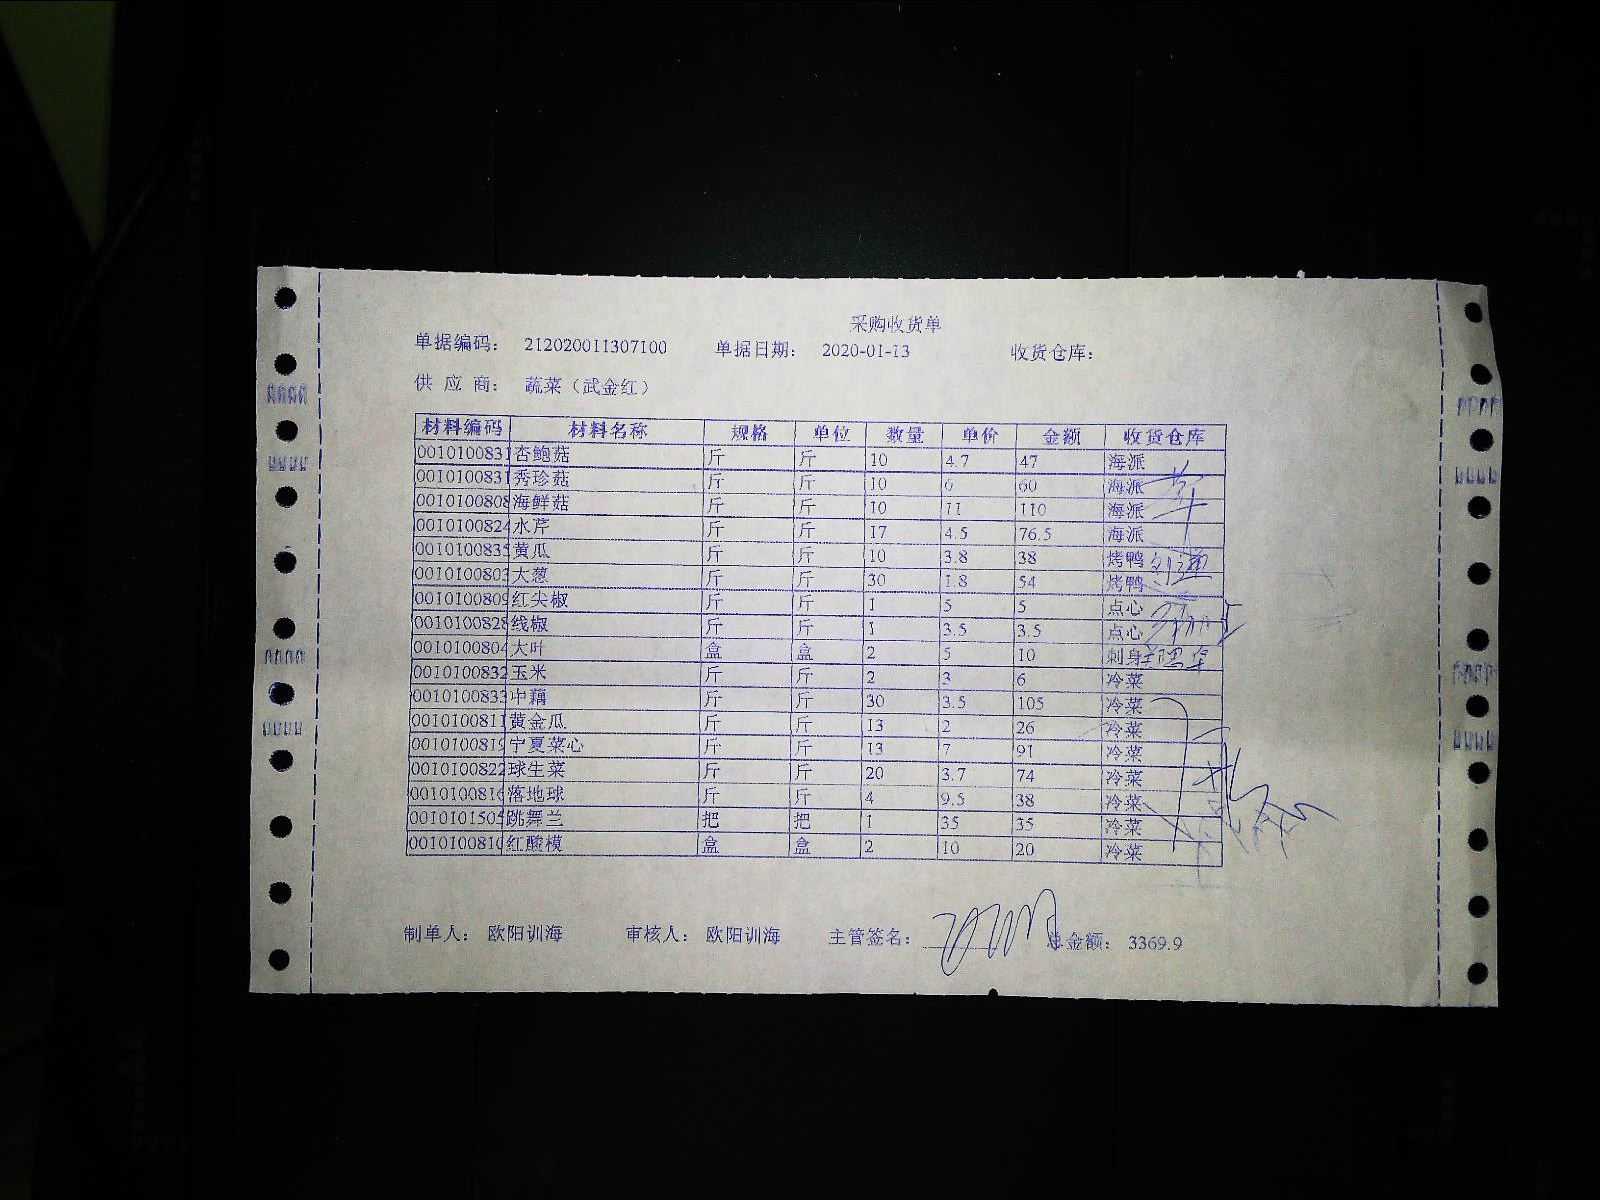 采购收货单
单据编码： 212020011307100 单据日期： 2020-01-13 收货仓库：
供 应 商： 蔬菜（武金红）
材料编码 材料名称 规格 单位 数量 单价 金额 收货仓库
0010100831 杏鲍菇 斤 斤 10 4.7 47 海派
0010100831 秀珍菇 斤 斤 10 6 60 海派
0010100808 海鲜菇 斤 斤 10 11 110 海派
0010100824 水芹 斤 斤 17 4.5 76.5 海派
0010100835 黄瓜 斤 斤 10 3.8 38 烤鸭
0010100803 大葱 斤 斤 30 1.8 54 烤鸭
0010100809 红尖椒 斤 斤 1 5 5 点心
0010100828 线椒 斤 斤 1 3.5 3.5 点心
0010100804 大叶 盒 盒 2 5 10 刺身
0010100832 玉米 斤 斤 2 3 6 冷菜
0010100833 中藕 斤 斤 30 3.5 105 冷菜
0010100811 黄金瓜 斤 斤 13 2 26 冷菜
0010100819 宁夏菜心 斤 斤 13 7 91 冷菜
0010100822 球生菜 斤 斤 20 3.7 74 冷菜
0010100816 落地球 斤 斤 4 9.5 38 冷菜
0010101505 跳舞兰 把 把 1 35 35 冷菜
0010100810 红酸模 盒 盒 2 10 20 冷菜
制单人： 欧阳训海 审核人： 欧阳训海 主管签名： 总金额： 3369.9